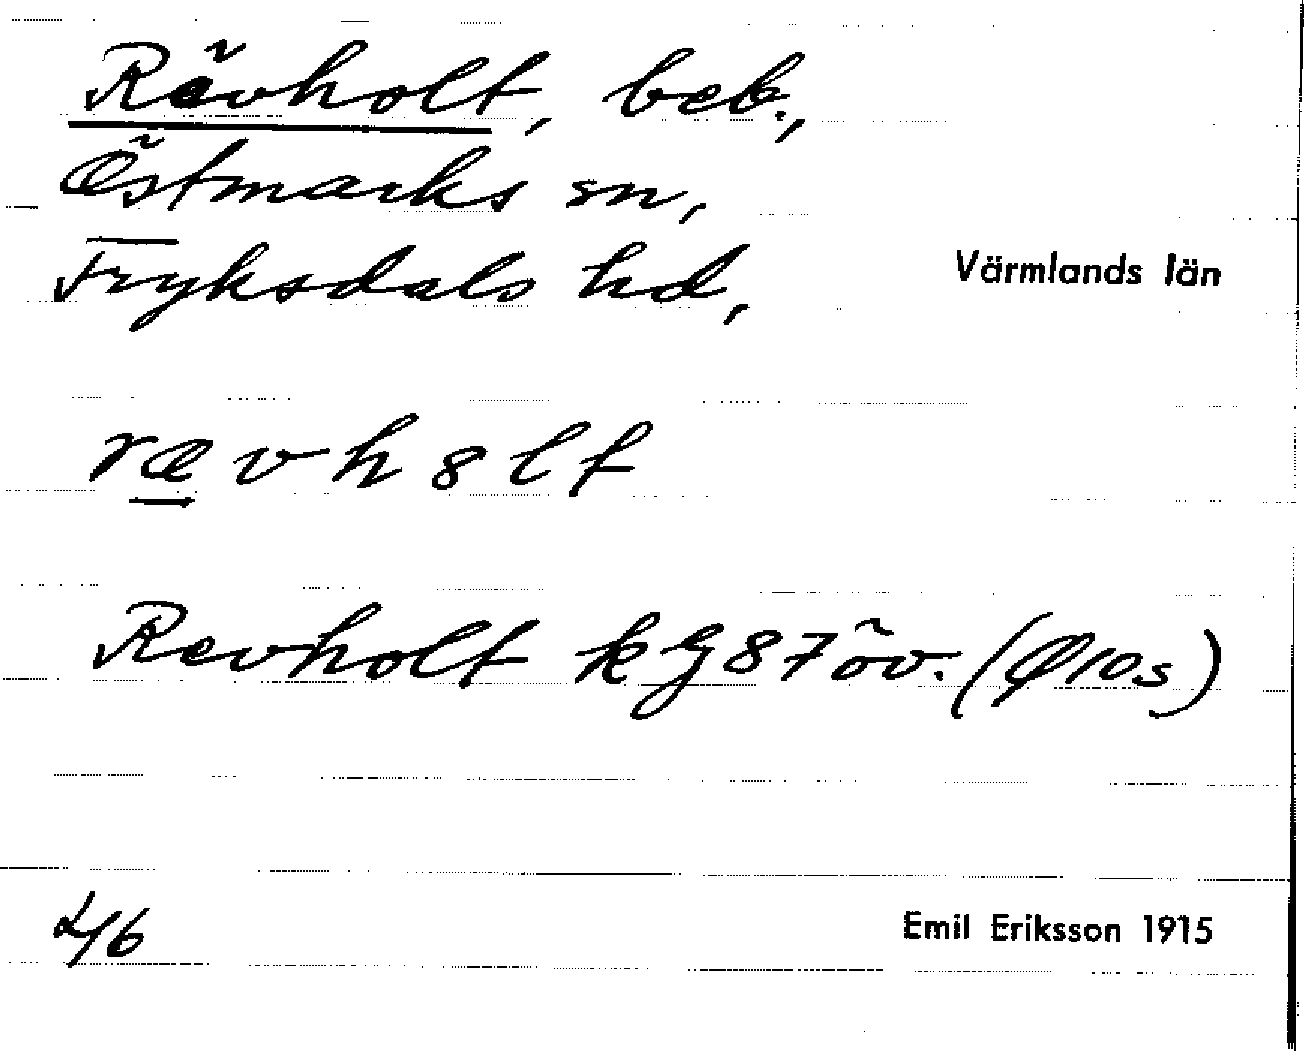 Rävholt, beb.,
Östmarks sn,
Fryksdals hd,
Värmlands län
rævh8lt
Revholt kG87öv. (Ø10s)
L/6
Emil Eriksson 1915